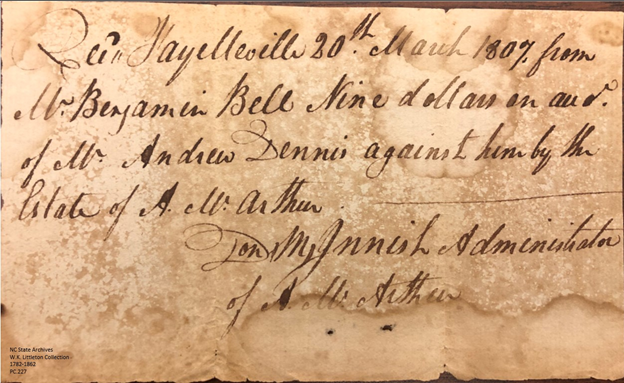 Recd Fayetteville 20th March 1807 from
Mr Benjamin Bell Nine dollars on
of Mr Andrew Dennis against him by the
Estate of A. Mc Arthur
Administrator
of A. Mc Arthur
NC State Archives
W.K. Littleton Collection -
1782-1862
PC.227